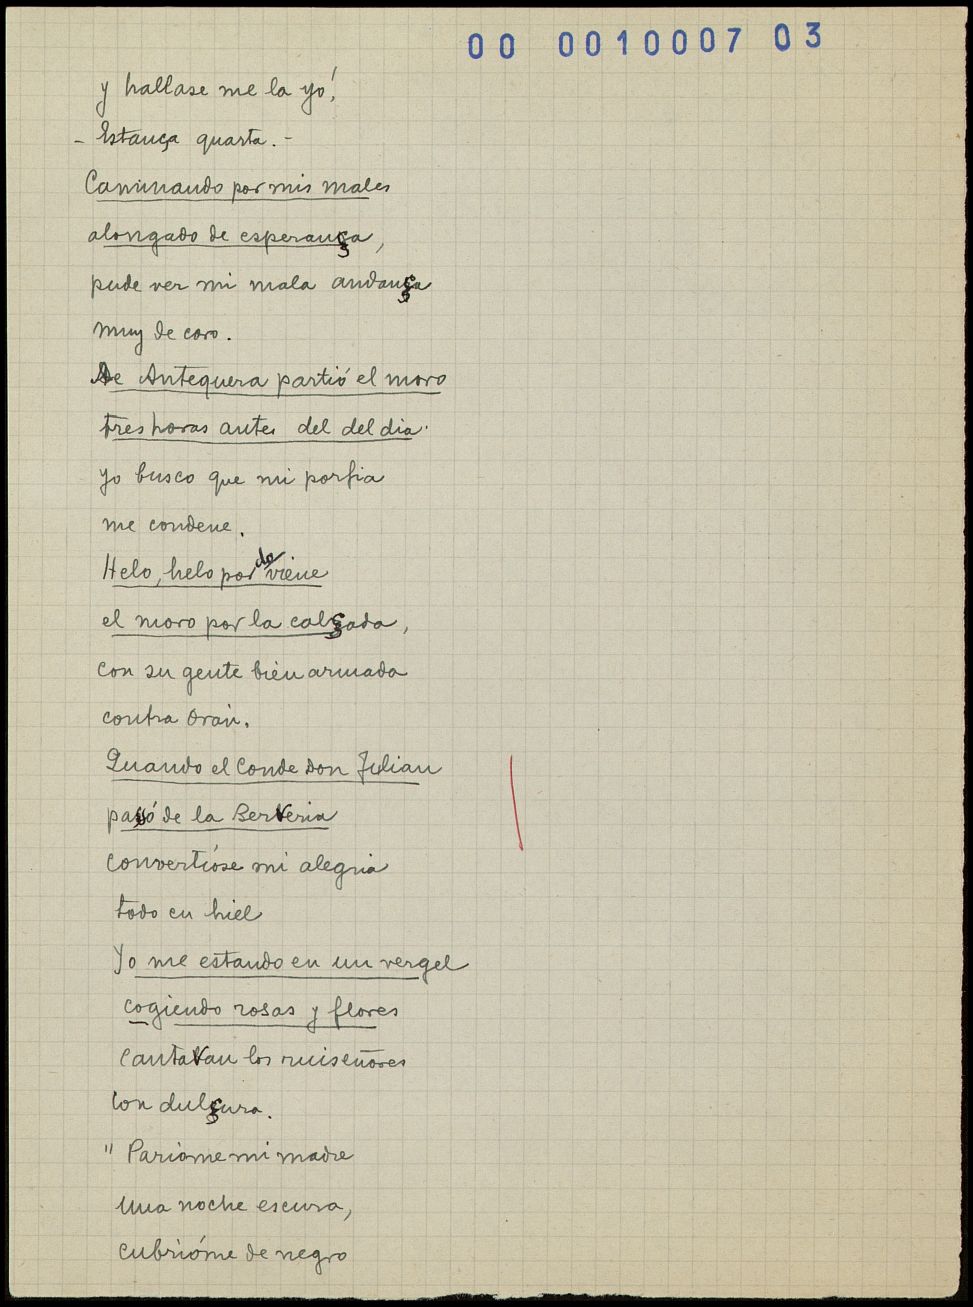 00 0010007 03
y hallase me la yo!
- Estança quarta. -
Caminando por mis males
alongado de esperança,
pude ver mi mala andança
muy de coro.
De Antequera partió el moro
tres horas antes del del dia.
yo busco que mi porfia
me condene.
Helo, helo por do viene
el moro por la calçada,
con su gente bien armada
contra Orán.
Quando el Conde Don Julian
pasó de la Berveria
convertióse mi alegria
todo en hiel
Yo me estando en un vergel
cogiendo rosas y flores
cantavan los ruiseñores
con dulçura.
" Parióme mi madre
una noche escura,
cubrióme de negro